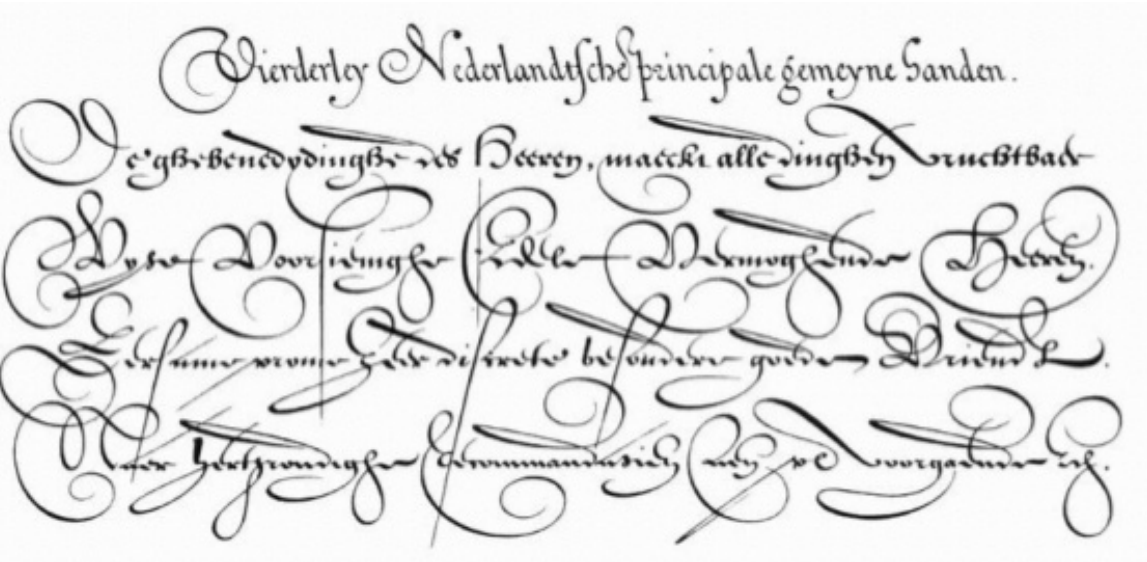 Vierderley Nederlandtsche principale gemeyne Handen.
De ghebenedydinghe des Heeren, maeckt alle dinghen vruchtbaer
Wyse Voorsieninghe Edele Vermoghende Heeren.
Eersame vrome discrete besondere goede Vriendt
Naer hertgrondighe Recommandatien voorgaende etc.